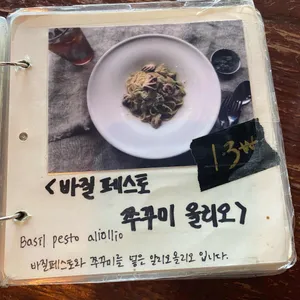 13번
<바질 페스토
쭈꾸미 올리오>
Basil pesto aliollio
바질페스토와 쭈꾸미를 넣은 알리오올리오 입니다.